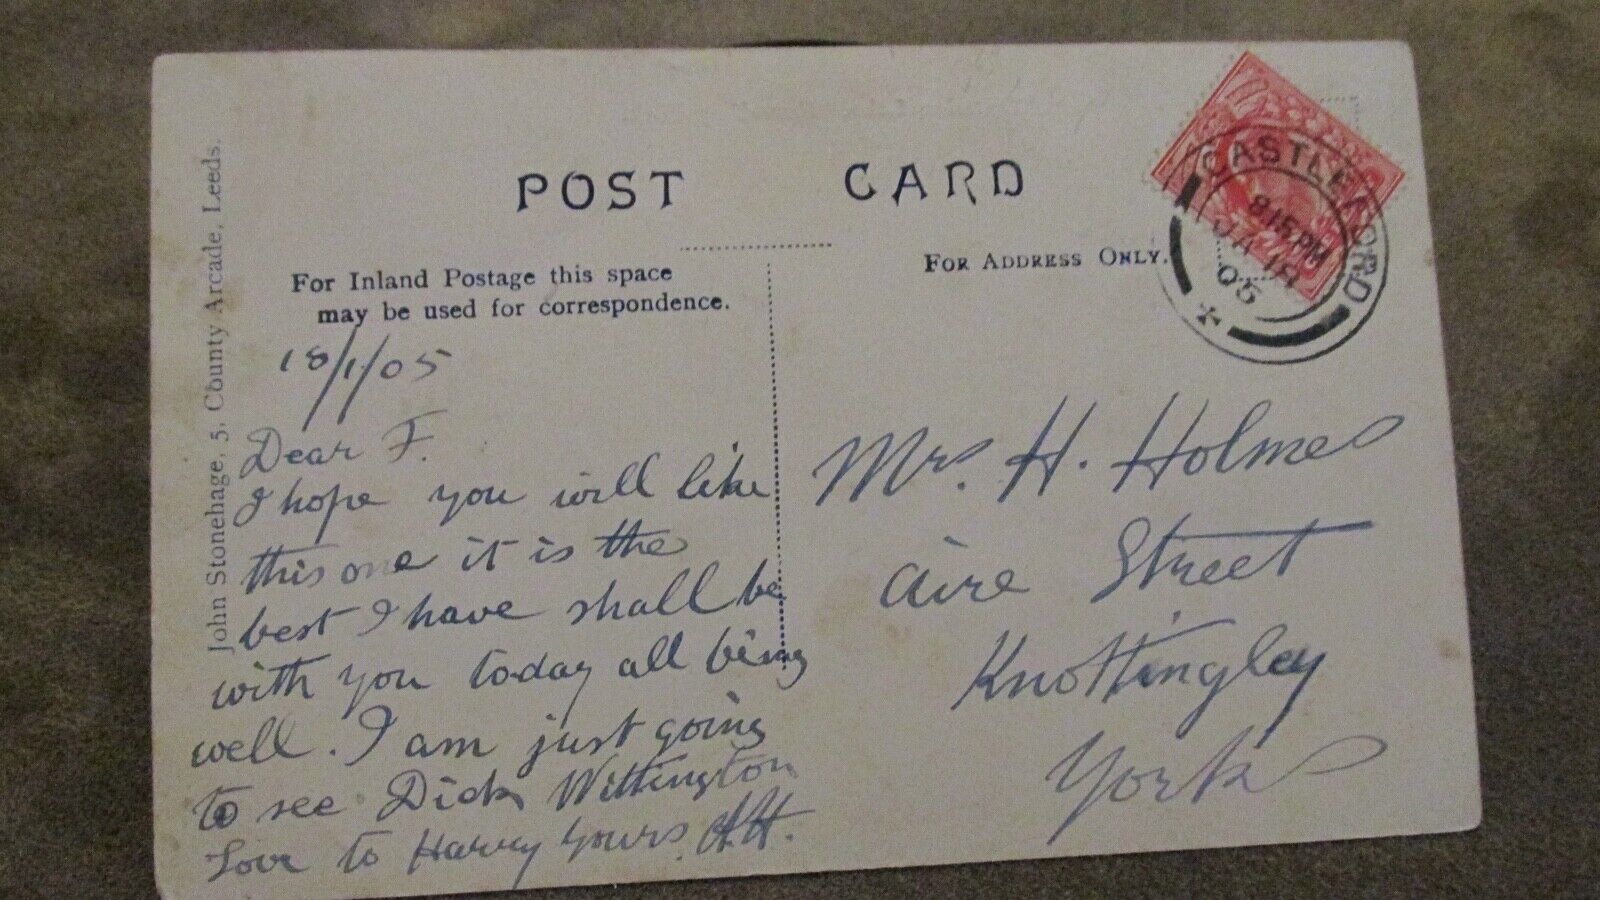 POST CARD
For Inland Postage this space
may be used for correspondence.
FOR ADDRESS ONLY.
CASTLEFORD
815PM
JA 18
05
John Stonehage, 5, County Arcade, Leeds.
18/1/05
Dear F.
I hope you will like
this one it is the
best I have shall be
with you today all being
well. I am just going
to see Dick Wittington
Love to Harry Yours.
Mrs. H. Holmes
Aire Street
Knottingley
Yorks